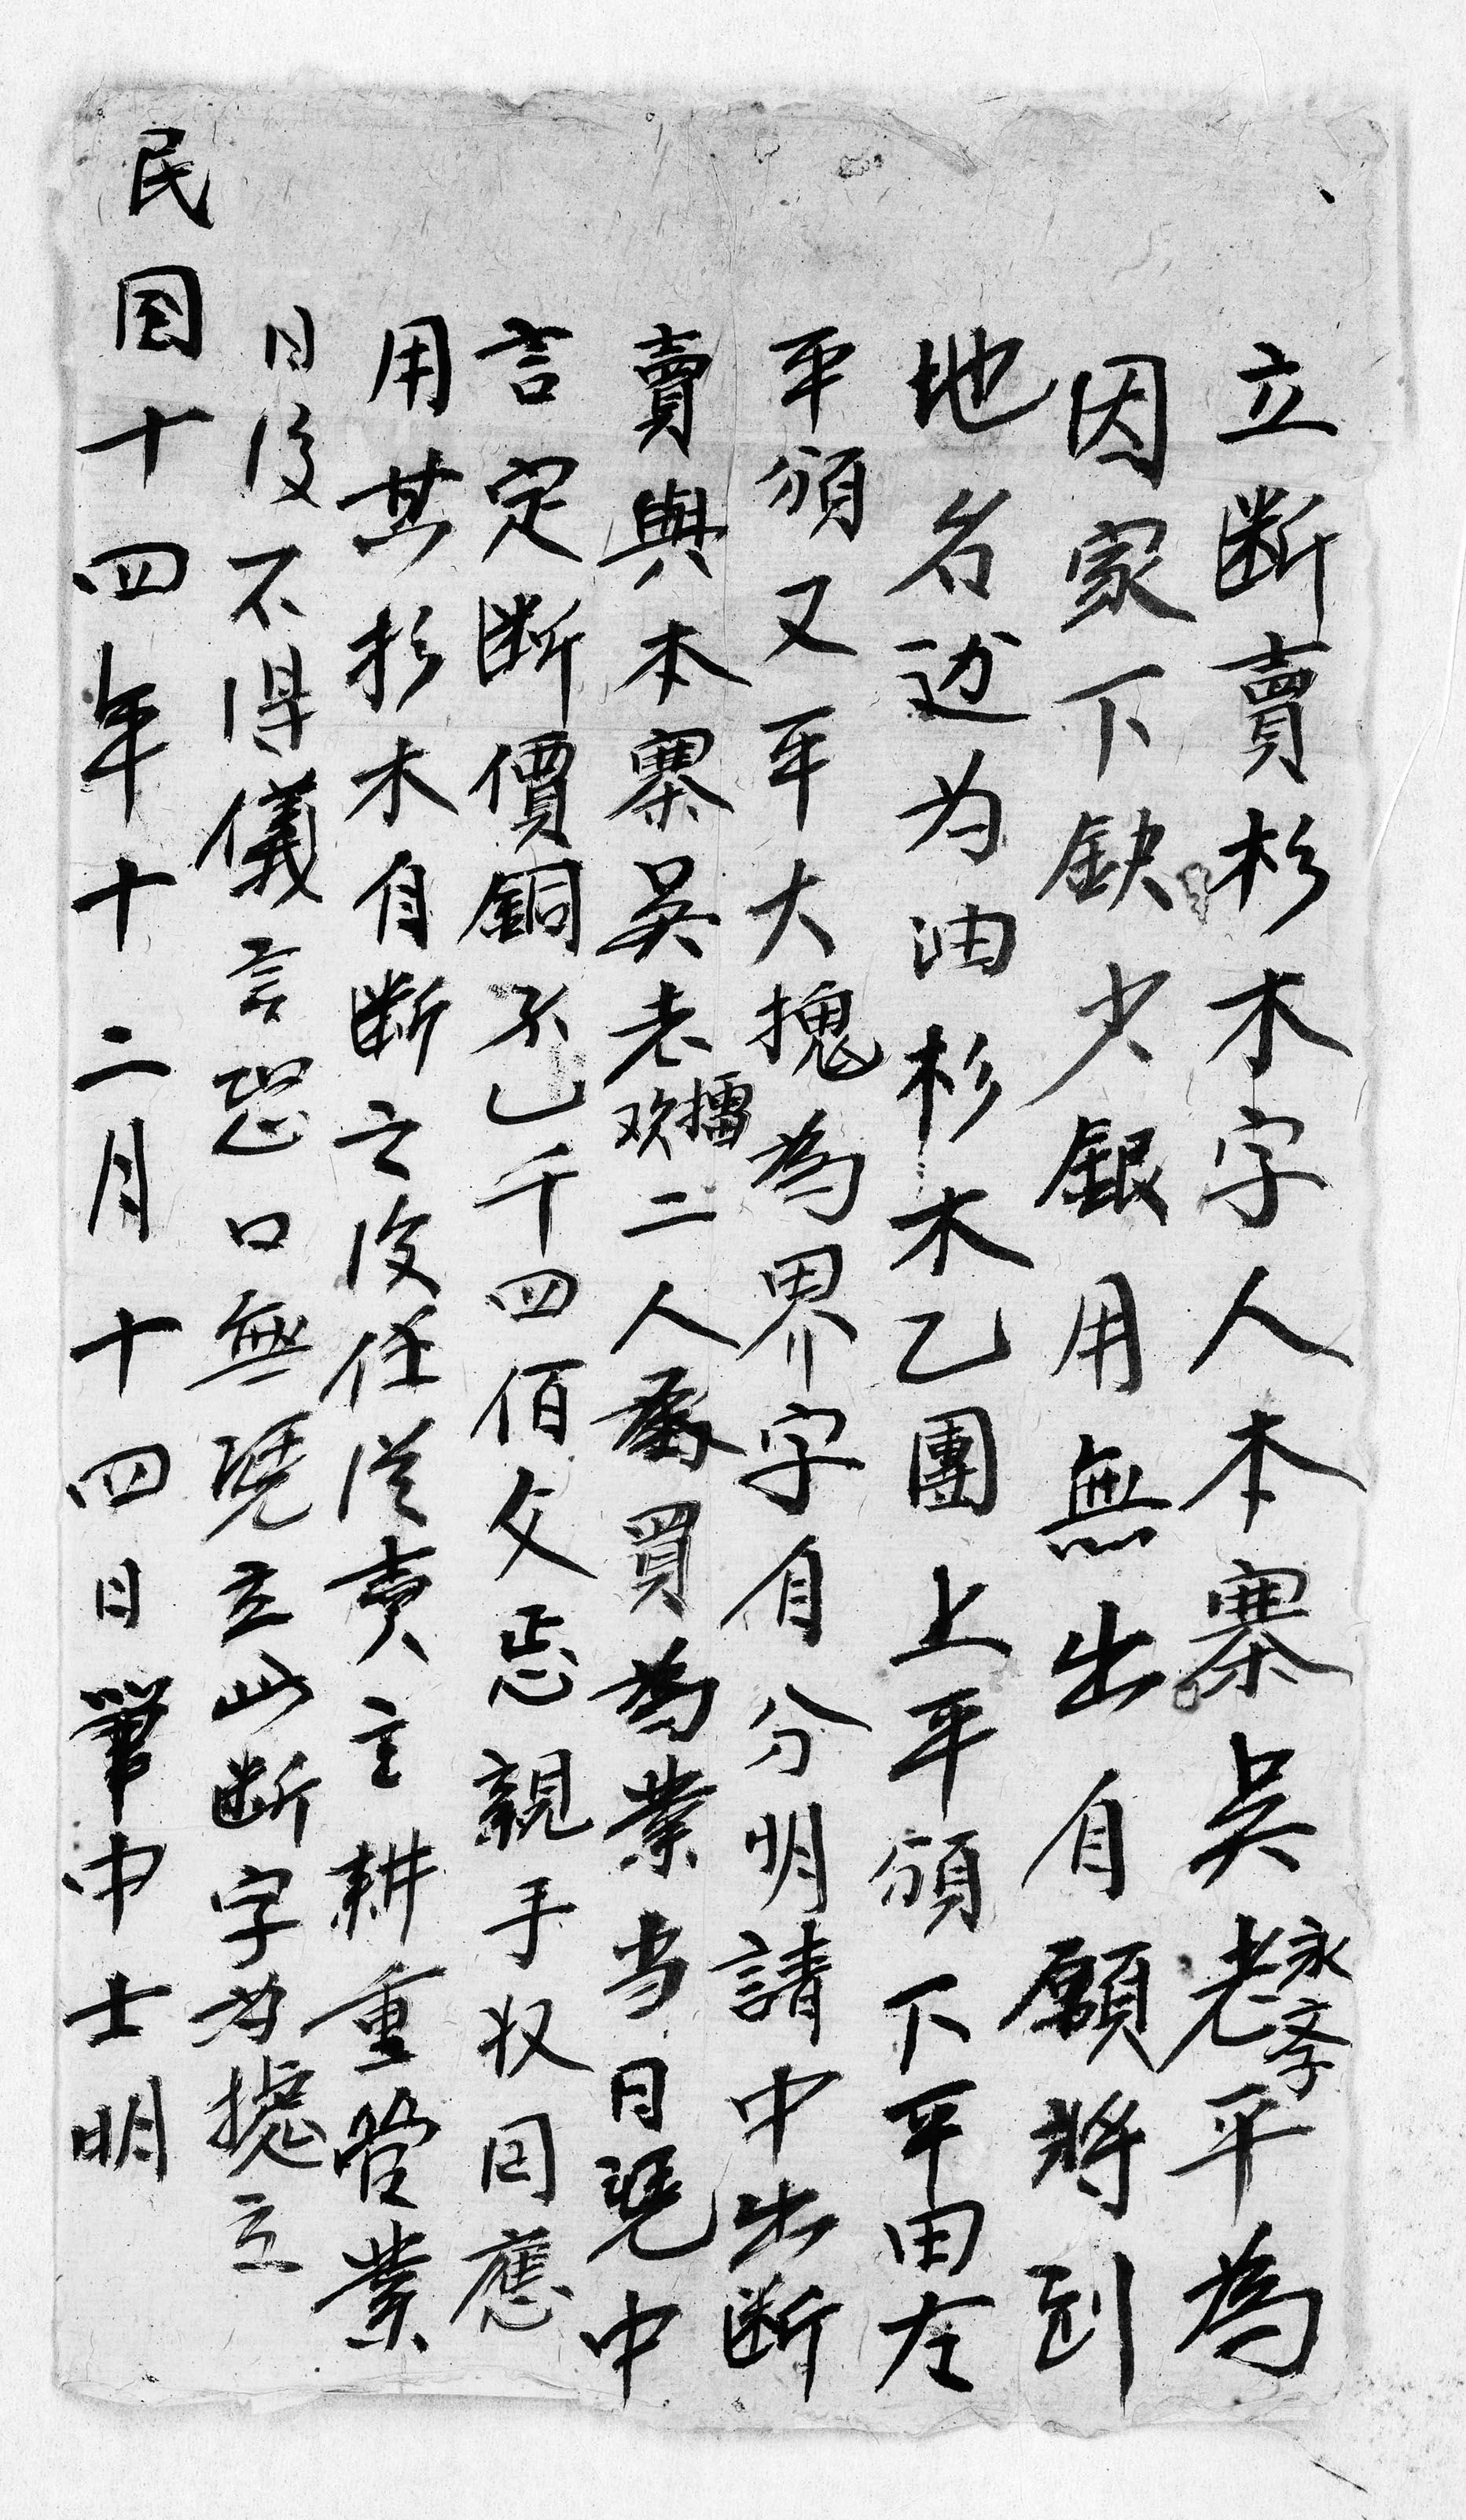 立断賣杉木字人本寨吳老永孝平為
因家下缺少銀用無出自願將到
地名边为油杉木乙團上平頒下平田左
平頒又平大塊為界字有分明請中出断
賣與本寨吳老欢擂二人承買為業当日凴中
言定断價銅不乙千四佰文正親手収回應
用其杉木自断之後任從賣主耕重管業
日後不得儀言恐口無凴立此断字为據立
民国十四年十二月十四日筆中士明